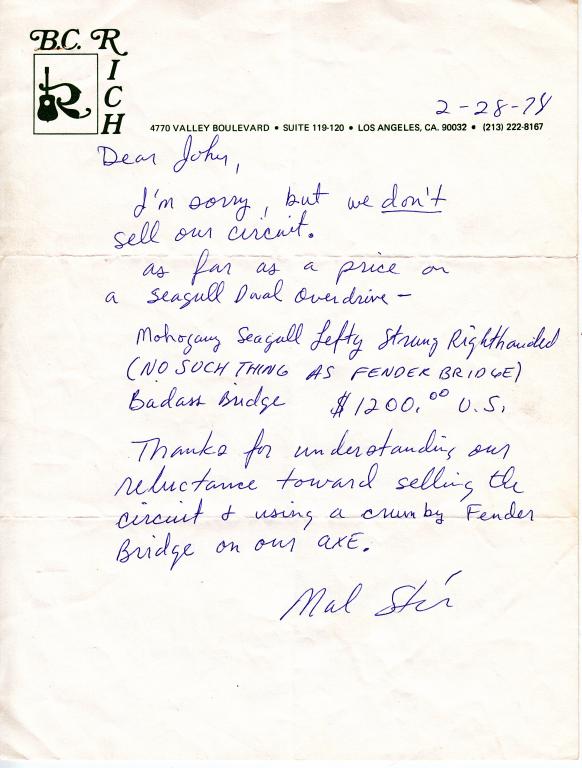 B.C. RICH
R
4770 VALLEY BOULEVARD • SUITE 119-120 • LOS ANGELES, CA. 90032 • (213) 222-8167
2-28-74
Dear John,
I'm sorry, but we don't
sell our circuit.
as far as a price on
a Seagull Dual Overdrive —
Mahogany Seagull Lefty Strung Righthanded
(NO SUCH THING AS FENDER BRIDGE)
Badass Bridge $1200.00 U.S.
Thanks for understanding our
reluctance toward selling the
circuit & using a crumby Fender
Bridge on our AXE.
Mal